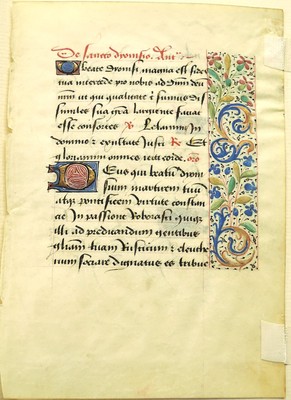 De sancto dyonisio. Ant
O beate Dyonisi magna est fides
tua intercede pro nobis ad dnm deum
nrm ut qui qualitate
similes sua
esse consortes ℣ Letamini In
domino et exultate Justi ℞ Et
gloriamini omnes recti corde. oro
Deus qui beatum dyoni
sium martirem tuum
atqz pontificem virtute constan
ae In passione roborasti quiqz
illi ad predicandum gentibus
gliam tuam rusticum et eleuthe
rium sociare dignatus es tribue